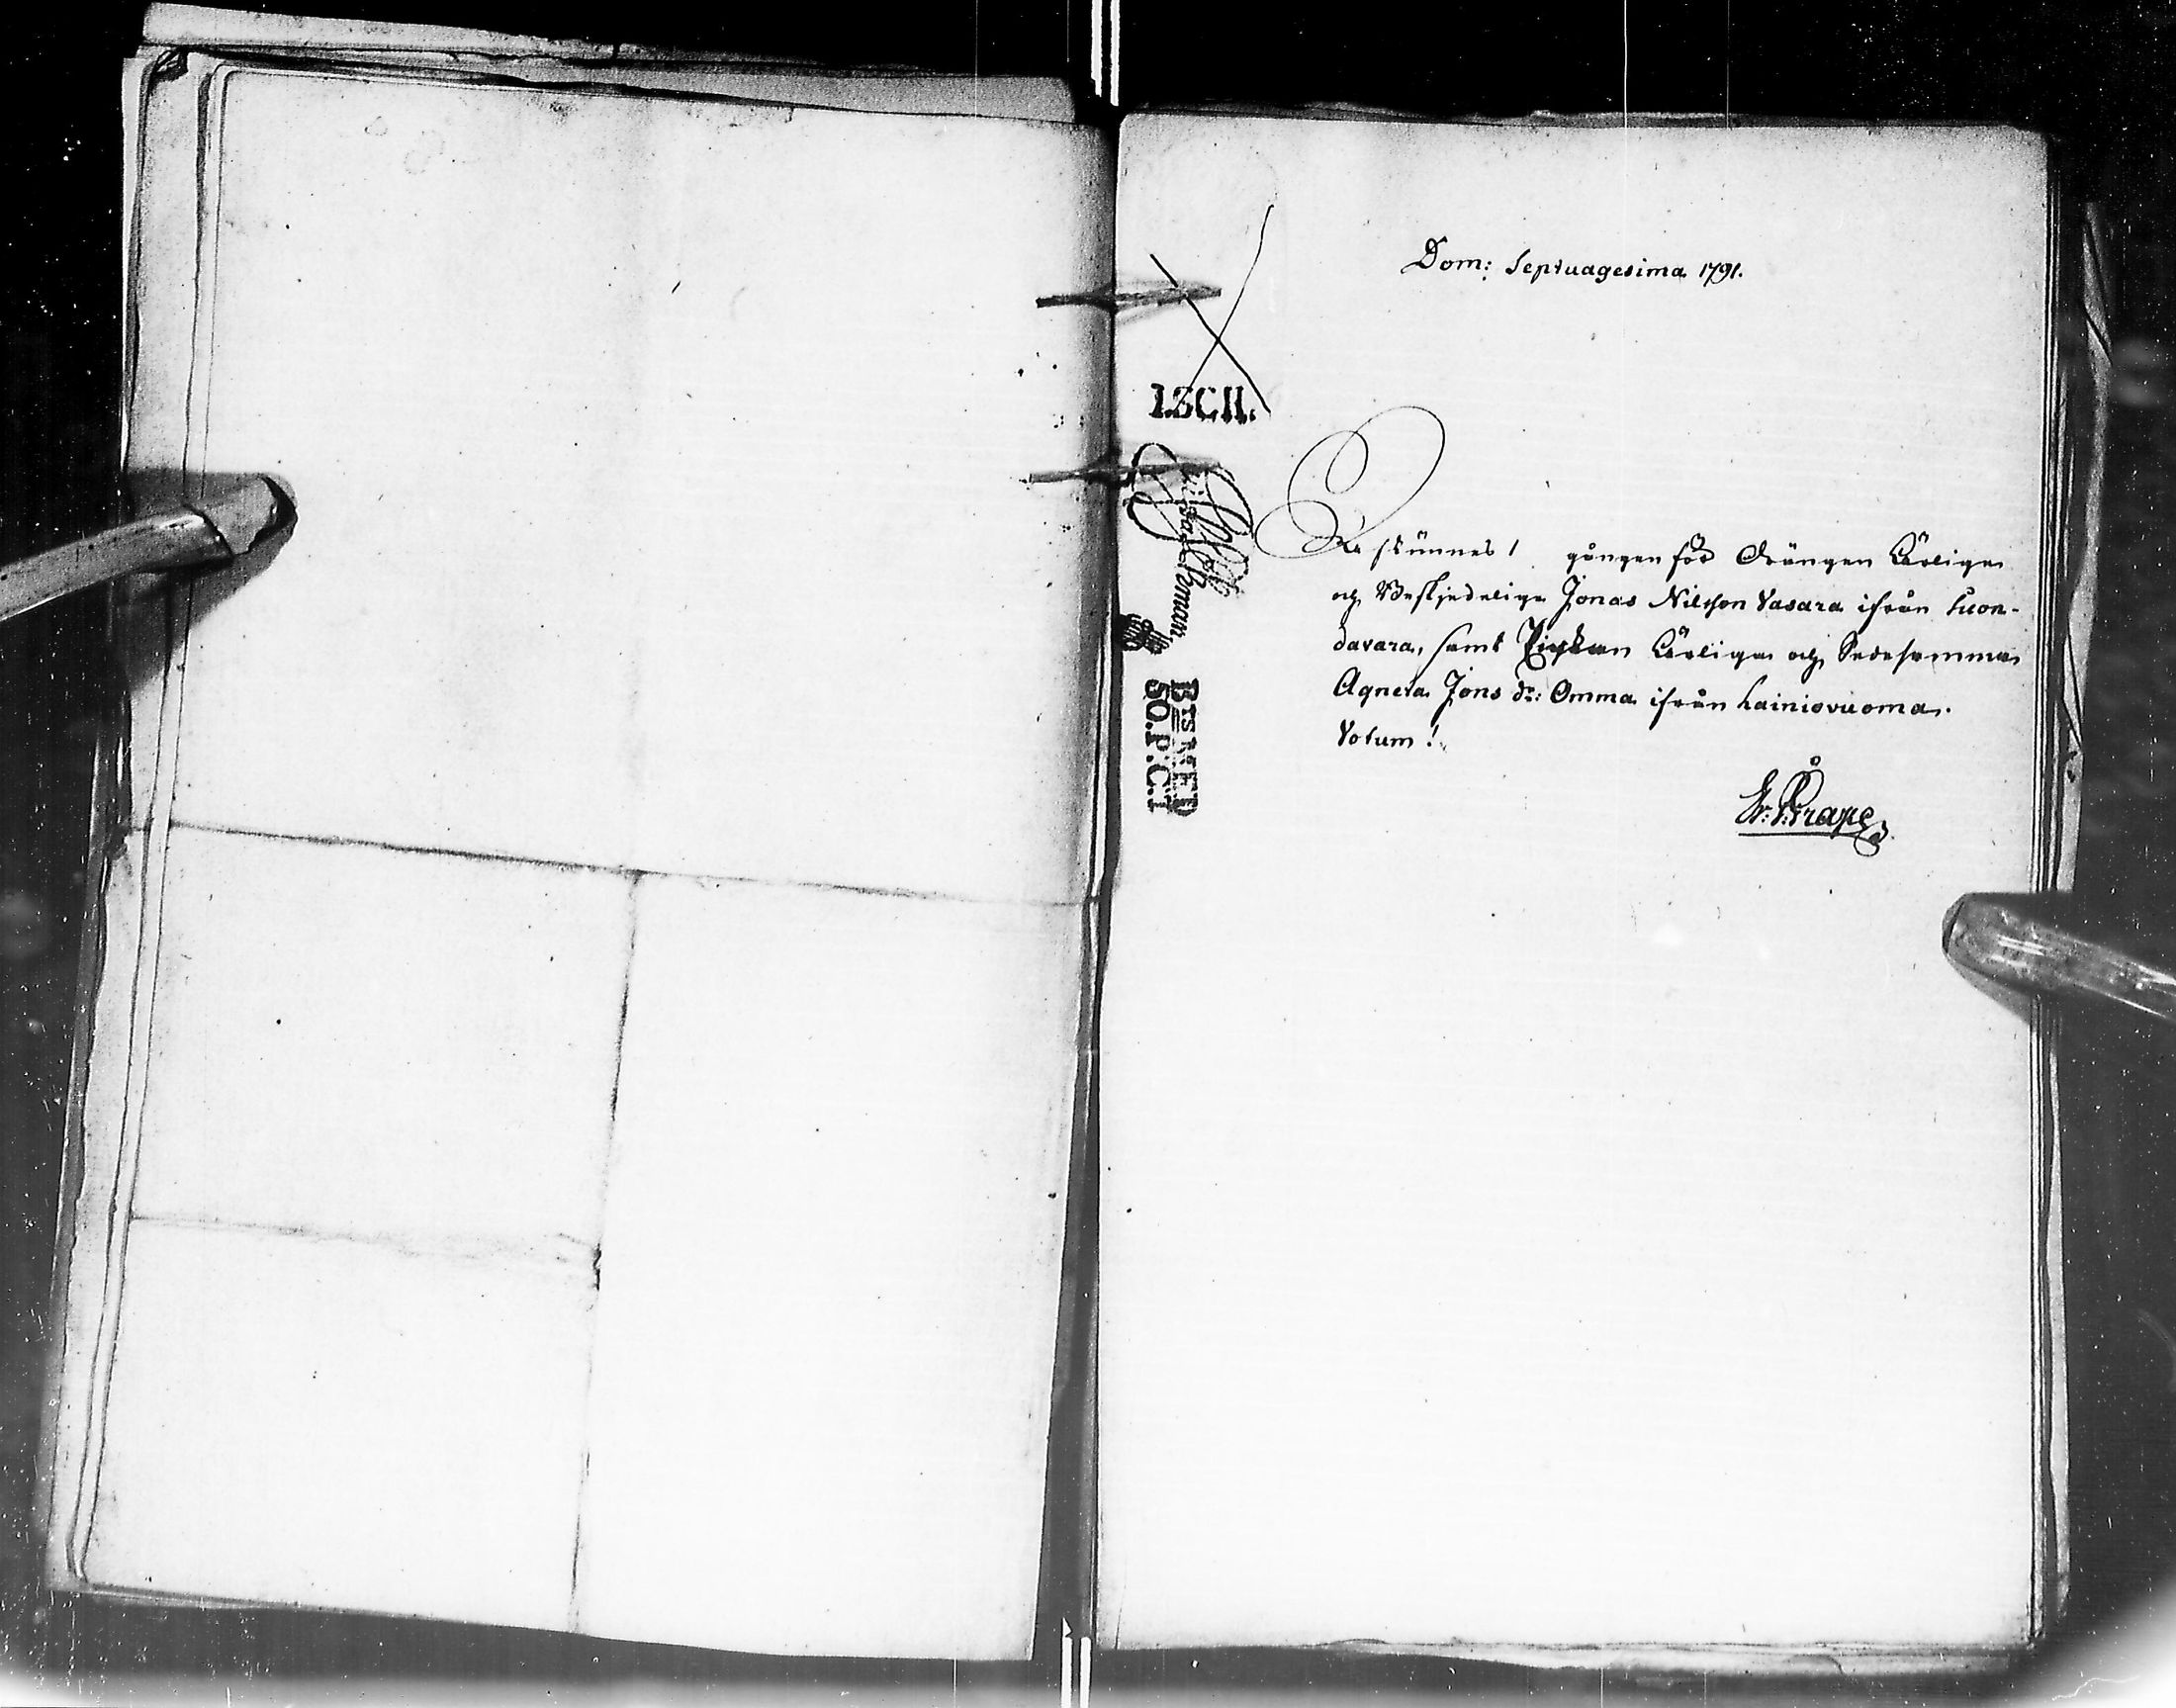 Dom: Septuagesima 1791.
1.SC.II.
afkünnes 1 gången för Drängen Ärlige
och Beskjedelige Jonas Nilsson Vasara ifrån Luon-
davara, samt Pigkan Ärliga och Sedesamma
Agneta Jöns dr: Omma ifrån Lainiovuoma.
Votum!
BTS MED
SO.P.C.I